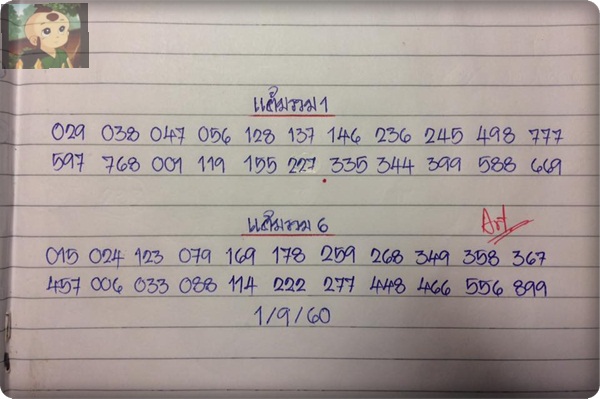 แต้มรวม 1
029 038 047 056 128 137 146 236 245 498 777
597 768 001 119 155 227 335 344 399 588 669
แต้มรวม 6
Art
015 024 123 079 169 178 259 268 349 358 367
457 006 033 088 114 222 277 448 466 556 899
1/9/60